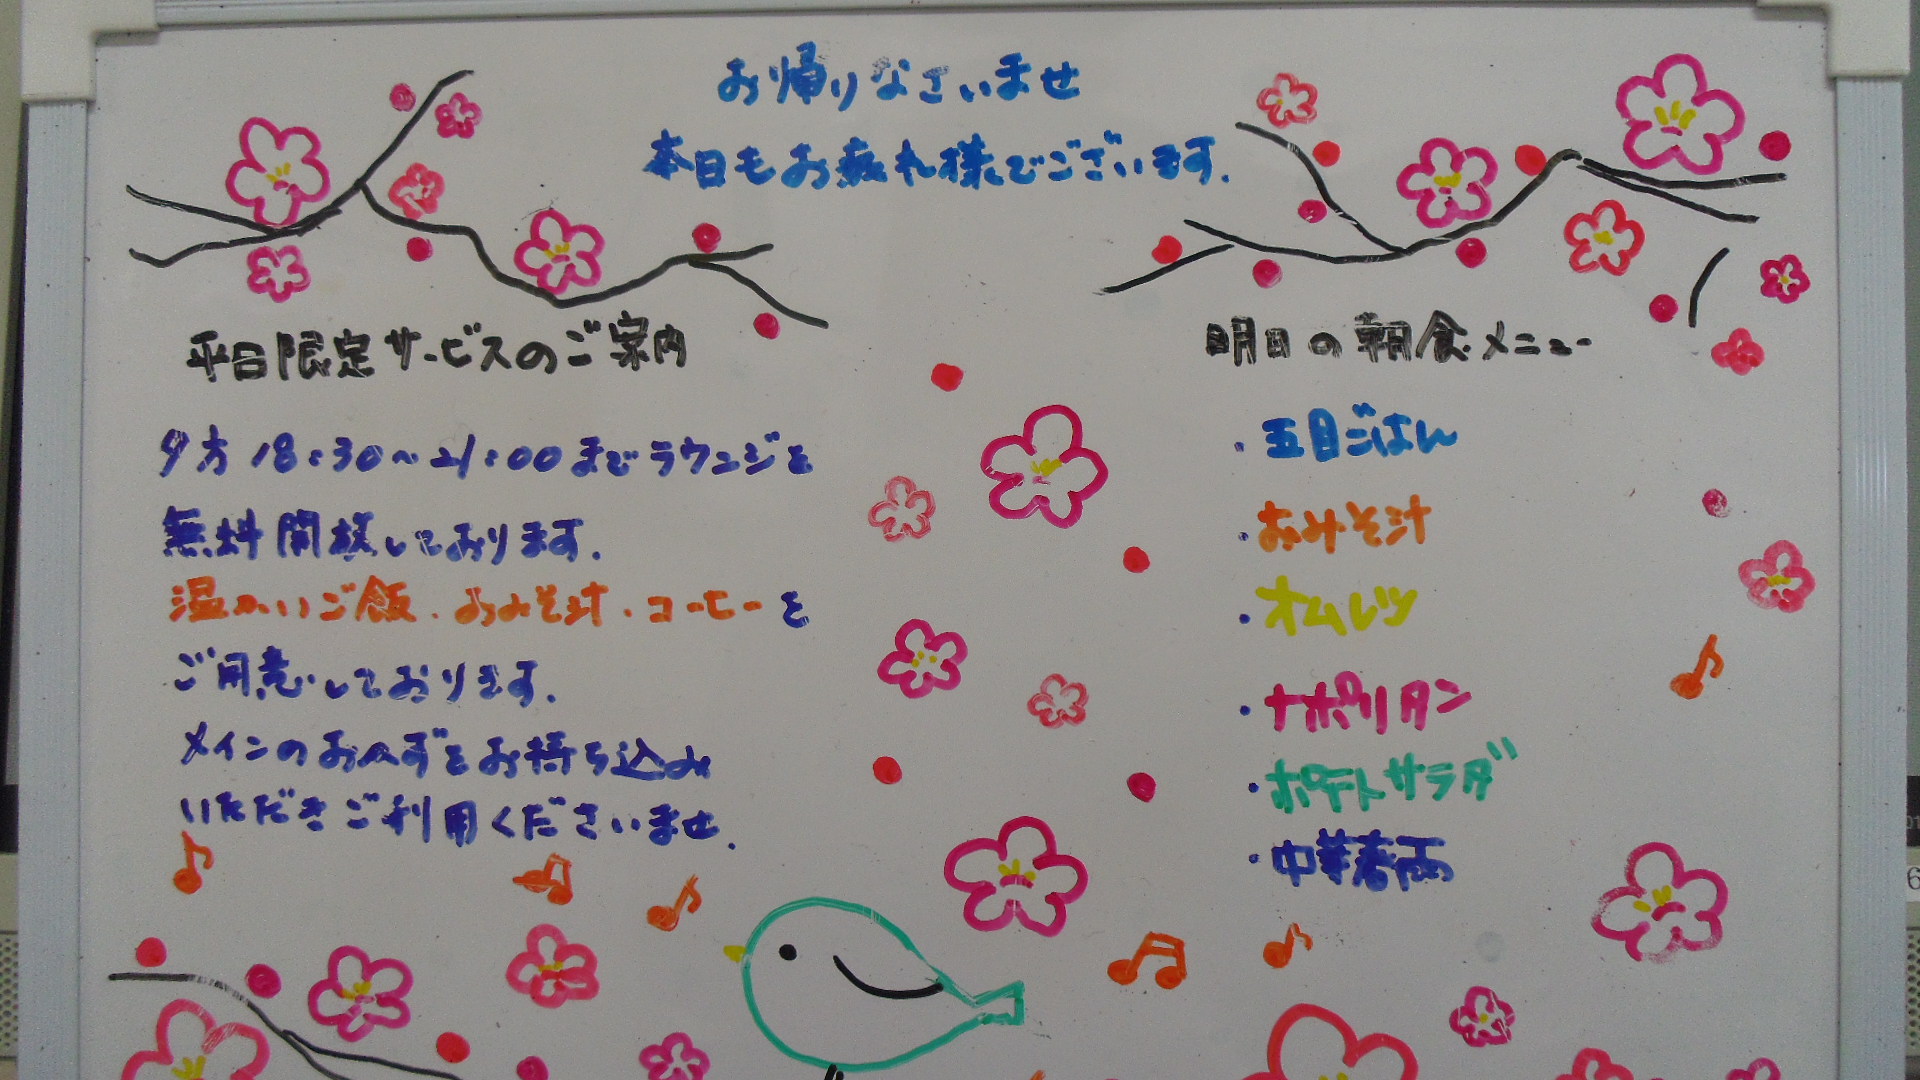 お帰りなさいませ
本日もお疲れ様でございます.
平日限定サービスのご案内
夕方18:30〜21:00までラウンジを
無料開放しております.
温かいご飯・おみそ汁・コーヒーを
ご用意しております.
メインのおかずをお持ち込み
いただきご利用くださいませ.
明日の朝食メニュー
・五目ごはん
・おみそ汁
・オムレツ
・ナポリタン
・ポテトサラダ
・中華春雨